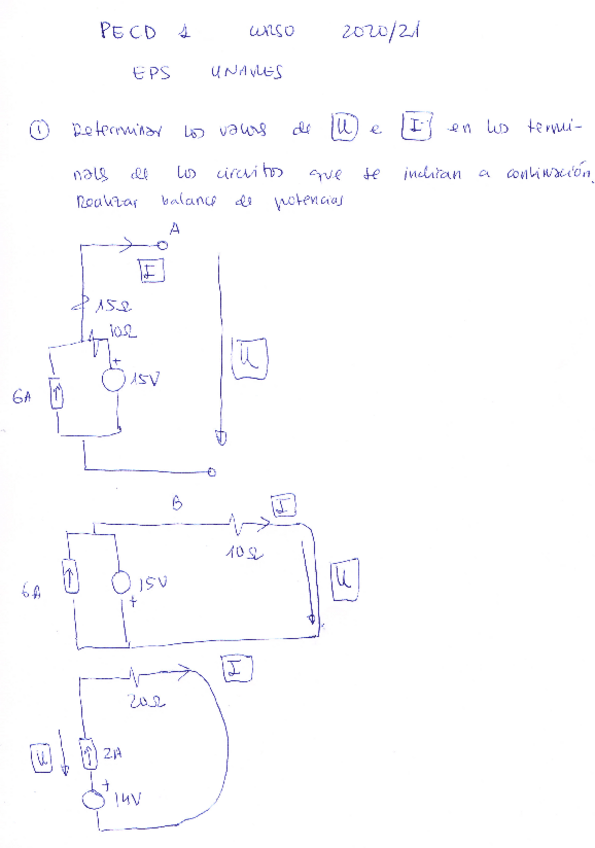 PECD 1 CURSO 2020/21
EPS LINARES
① Determinar los valores de U e I en los termi-
nales de los circuitos que se indican a continuación.
Realizar balance de potencias
A
I
15Ω
10Ω
+
15V
U
6A
B
I
10Ω
6A
15V
+
U
I
20Ω
U
2A
+
14V